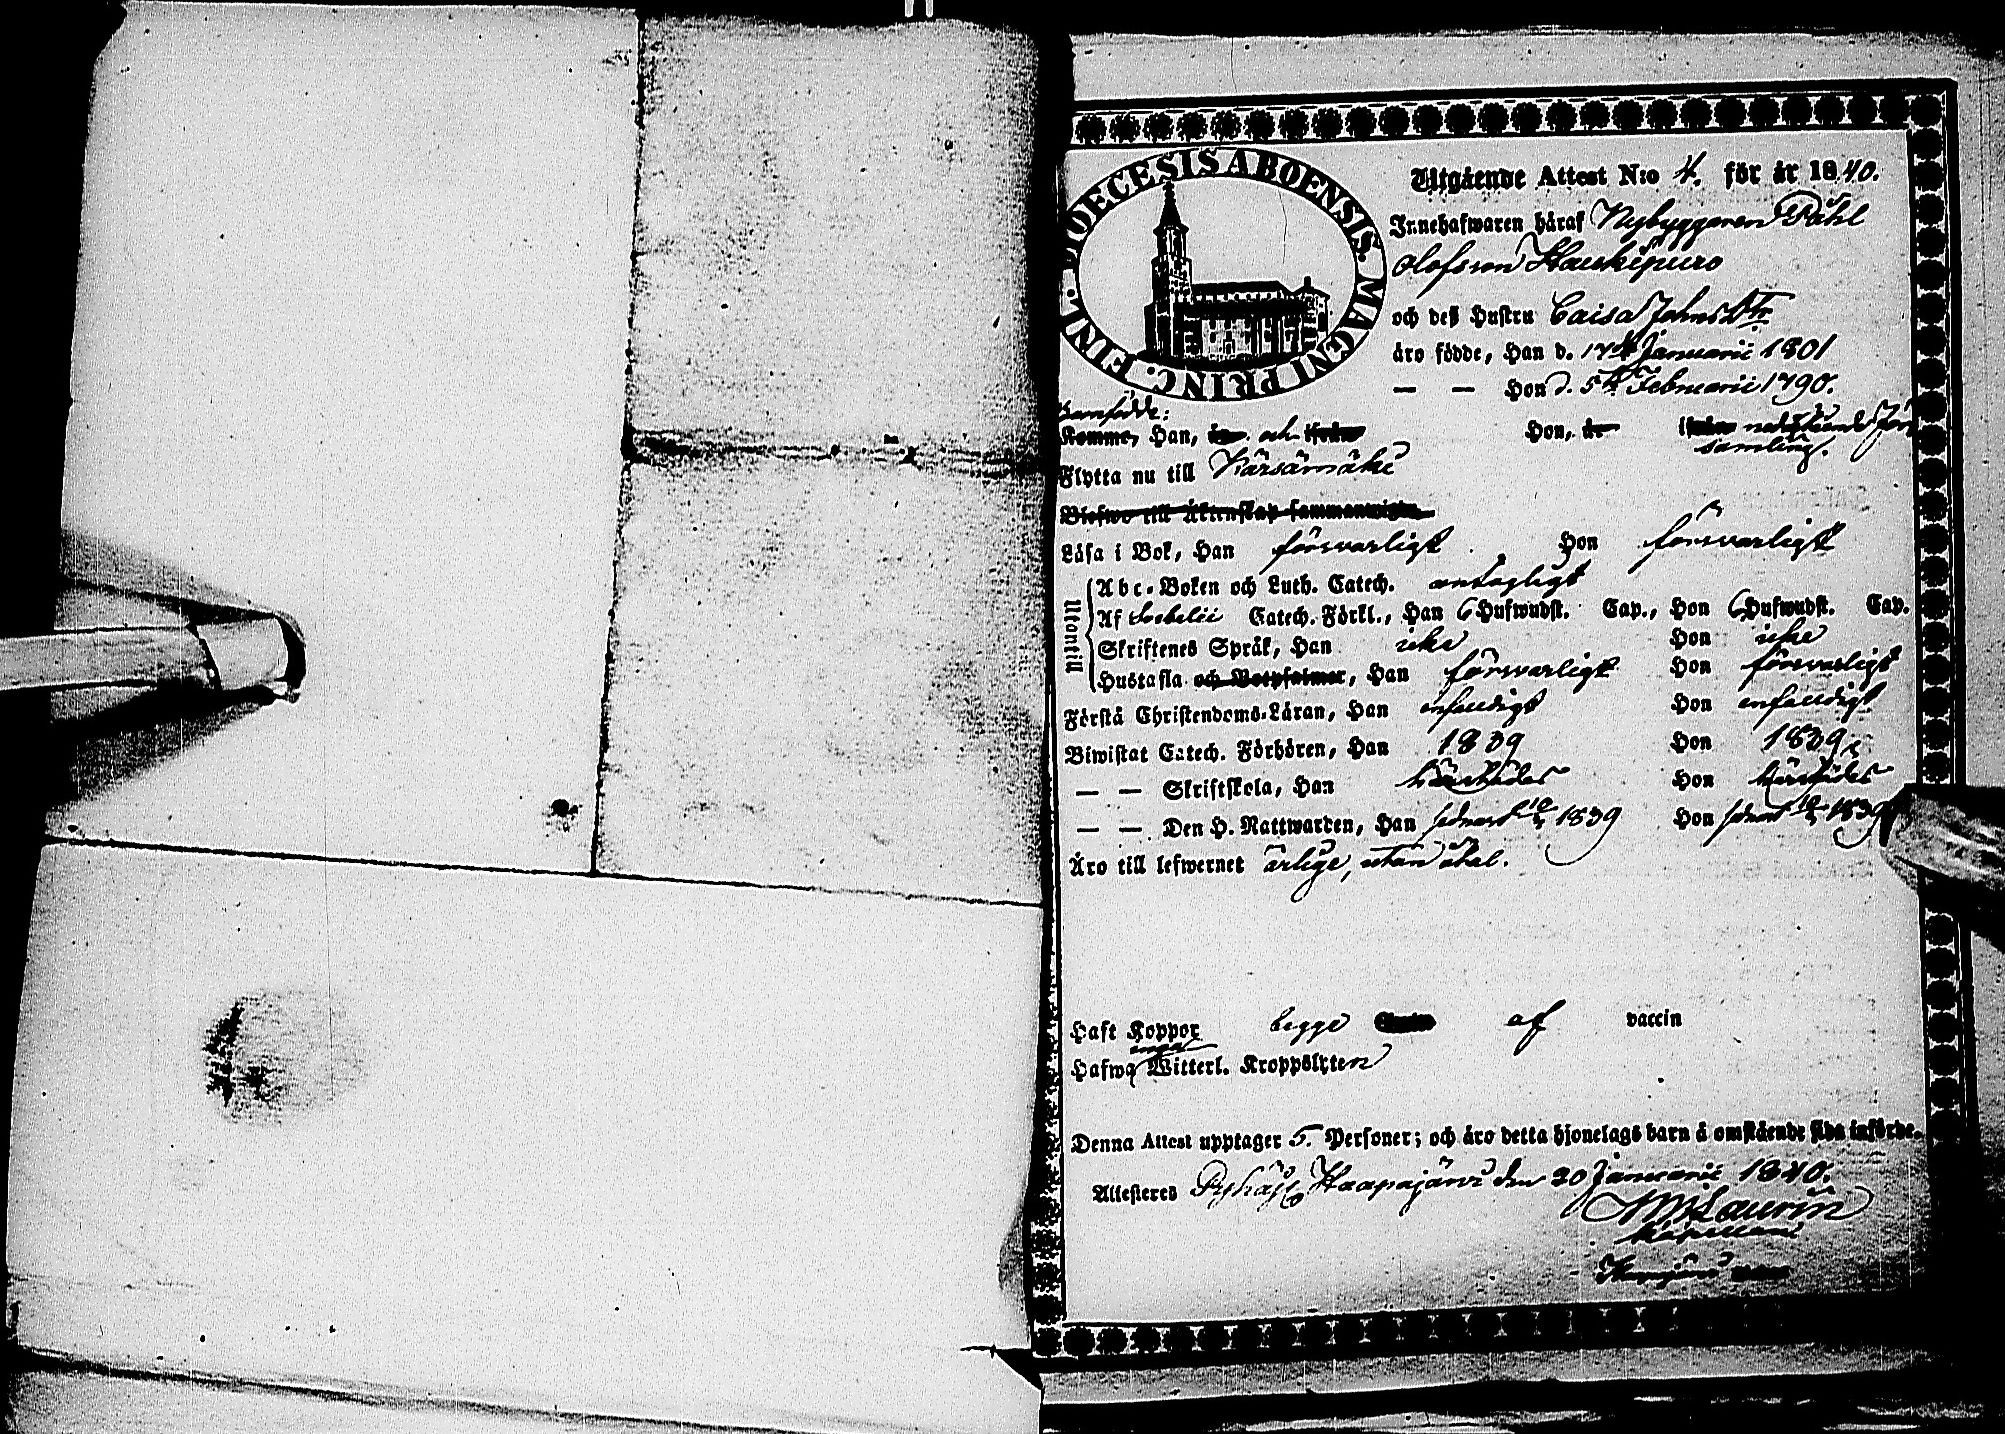 DIOECESIS ABOENSIS. MAGNI PRINC. FINL.
Utgående Attest N:o 4. för år 1840.
Innehafwaren häraf Nybyggaren Påhl
Olofsson Hauskipuro
och deß Hustru Caisa Johns Dtr
äro födde, Han d. 17de Januarii 1801
— — Hon d. 5te Februarii 1790.
Komme, Han, och ifrån Hon, är ifrån nedanstående För
samling.
Flytta nu till Kärsämäki
Blefwo till Äktenskap sammanwigde
Läsa i Bok, Han försvarligt Hon försvarligt
Utantill
Abc-Boken och Luth. Catech. antagligt
Af Svebelii Catech. Förkl., Han 6 Hufwudst. Cap., Hon 6 Hufwudst. Cap.
Skriftenes Språk, Han icke Hon icke
Hustafla och Botpsalmer, Han försvarligt Hon försvarligt
Förstå Christendoms-Läran, Han enfaldigt Hon enfaldigt
Biwistat Catech. Förhören, Han 1839 Hon 1839
— — Skriftskola, Han härstädes Hon härstädes
— — Den H. Nattwarden, Han sednast 1839 Hon sednast 1839
Äro till lefwernet ärlige, utan åtal.
Haft Koppor begge af vaccin
inga
Hafwa Witterl. Kroppslyten
Denna Attest upptager 5. Personer; och äro detta hjonelags barn å omstående sida införde.
Attesteres Pyhäj. Haapajärvi den 20 Januarii 1840.
Laurin
Kapellan